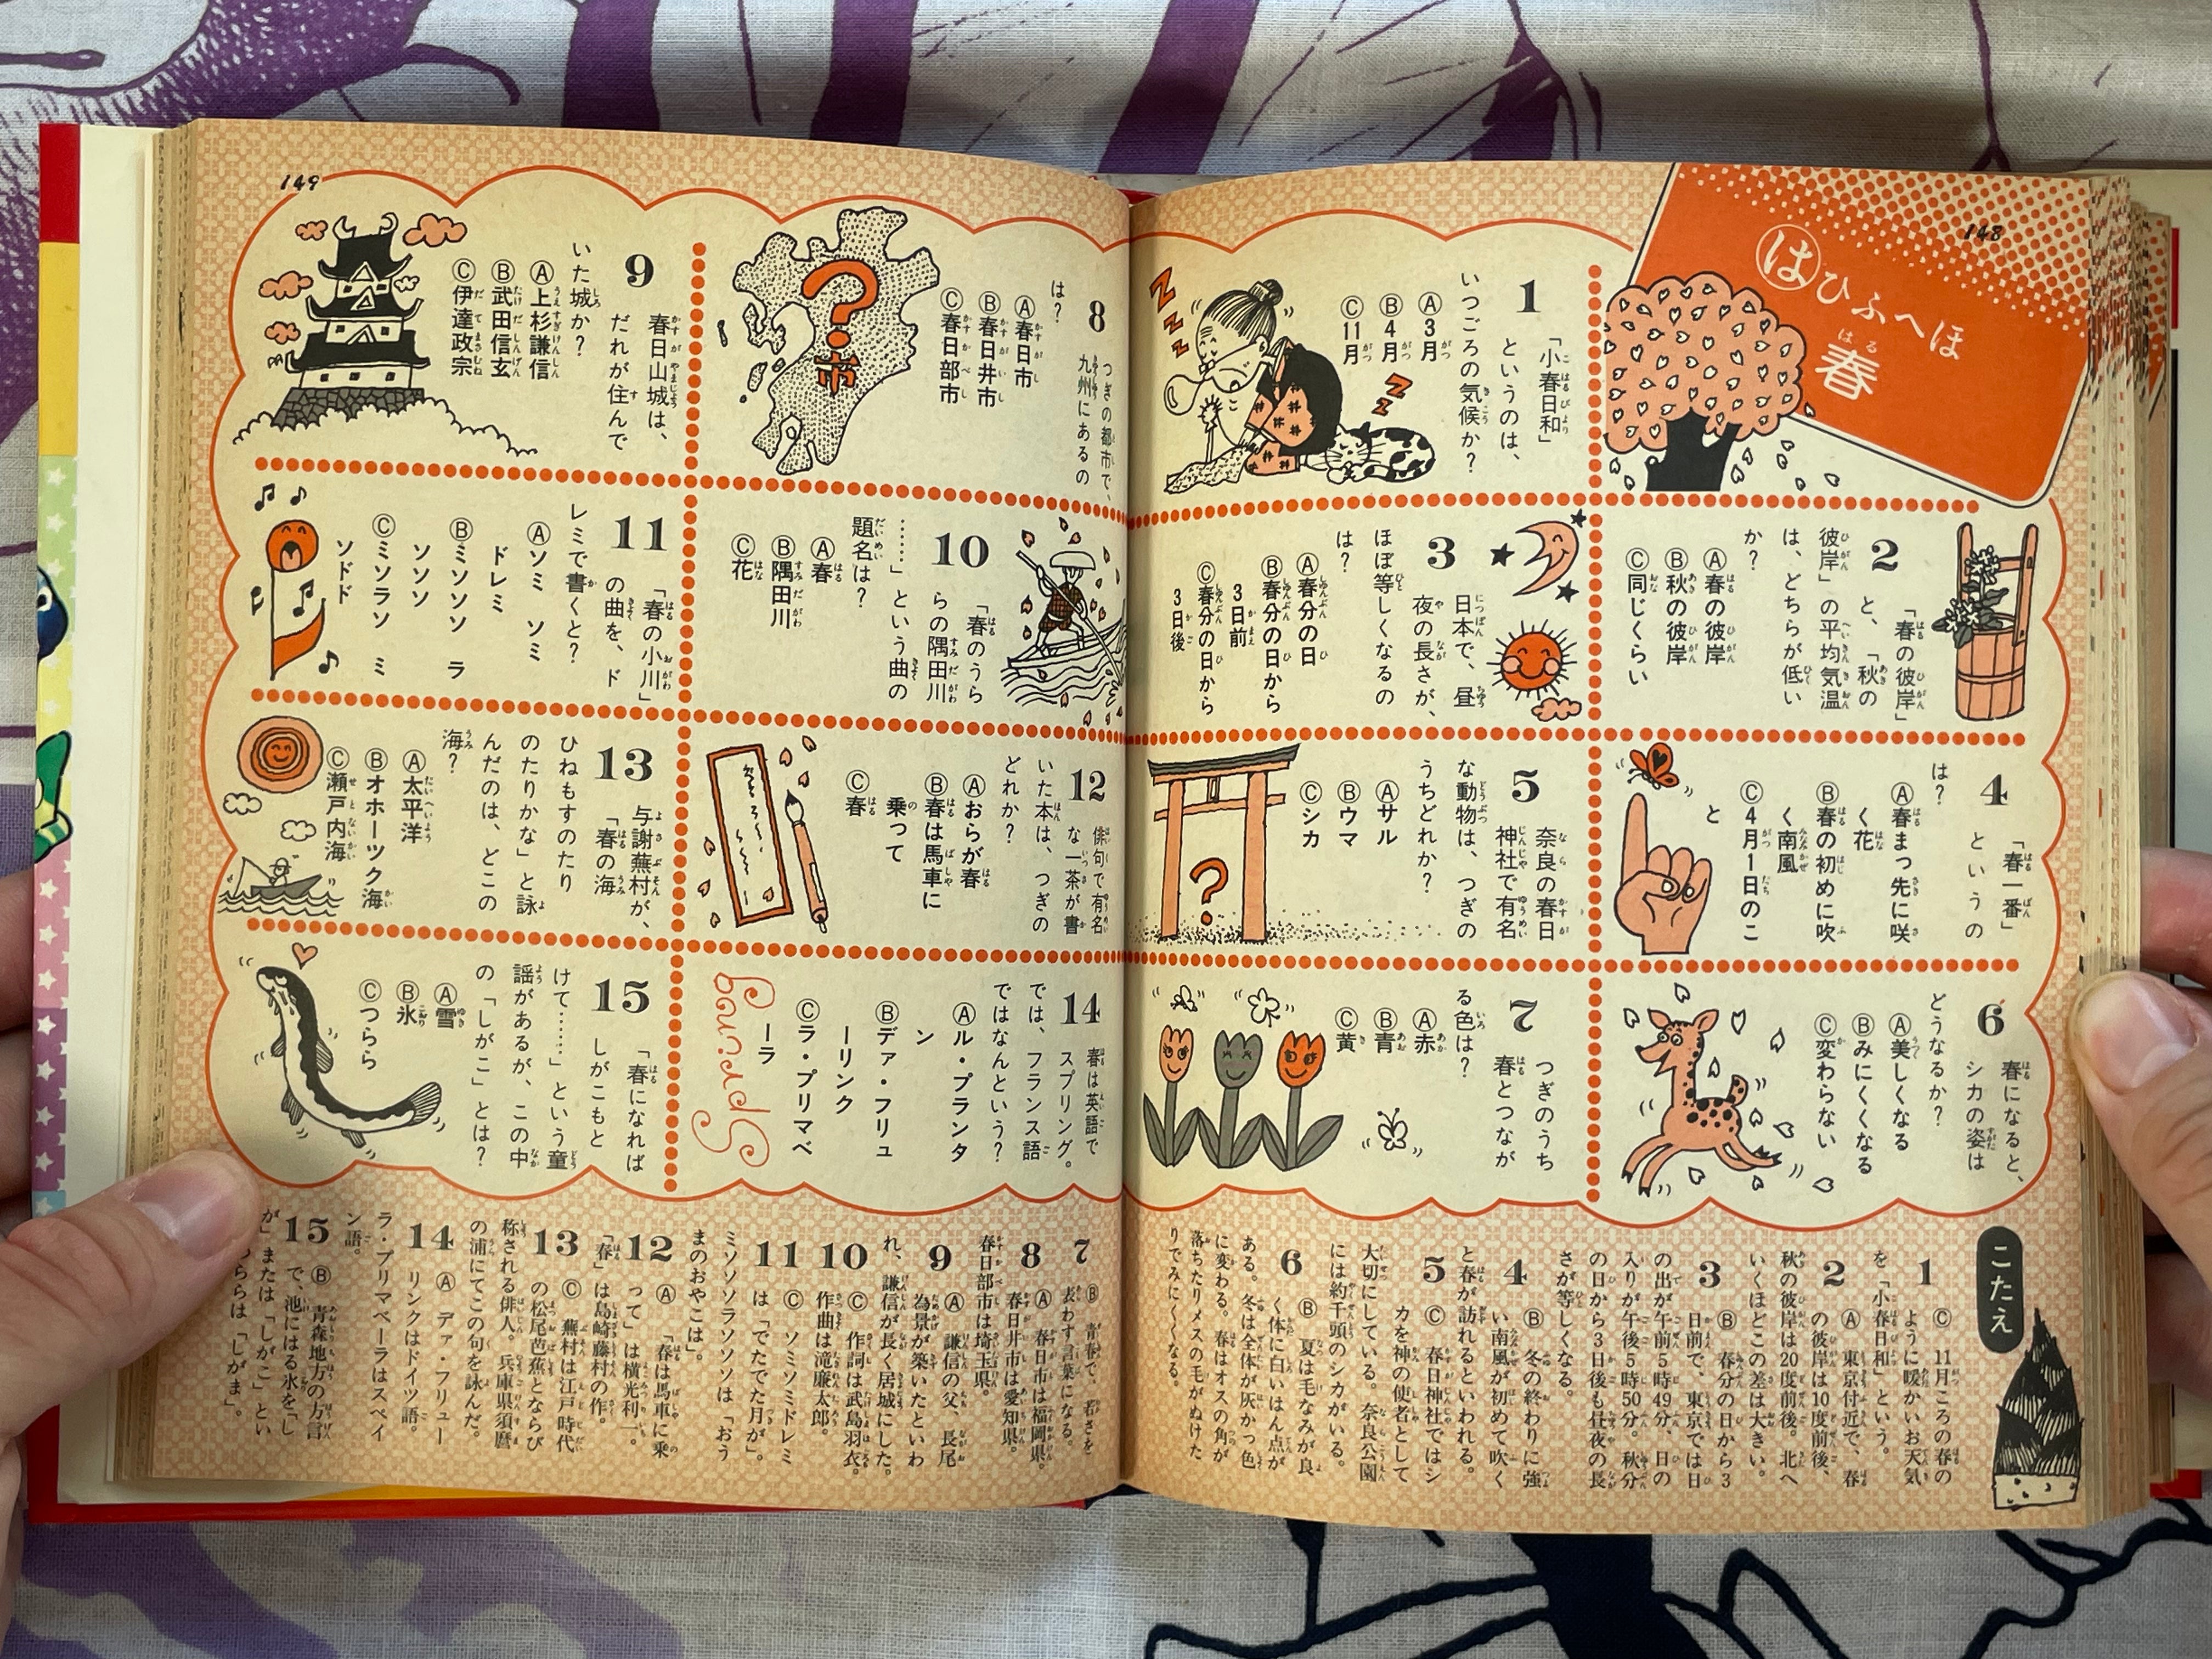 148
はひふへほ
春
1
「小春日和」
というのは、
いつごろの気候か？
Ⓐ3月
Ⓑ4月
Ⓒ11月
2
「春の彼岸」
と、「秋の
彼岸」の平均気温
は、どちらが低い
か？
Ⓐ春の彼岸
Ⓑ秋の彼岸
Ⓒ同じくらい
3
日本で、昼
夜の長さが、
ほぼ等しくなるの
は？
Ⓐ春分の日
Ⓑ春分の日から
3日前
Ⓒ春分の日から
3日後
4
「春一番」
というの
は？
Ⓐ春まっ先に咲
く花
Ⓑ春の初めに吹
く南風
Ⓒ4月1日のこ
と
5
奈良の春日
神社で有名
な動物は、つぎの
うちどれか？
Ⓐサル
Ⓑウマ
Ⓒシカ
?
6
春になると、
シカの姿は
どうなるか？
Ⓐ美しくなる
Ⓑみにくくなる
Ⓒ変わらない
7
つぎのうち
春とつなが
る色は？
Ⓐ赤
Ⓑ青
Ⓒ黄
こたえ
1 Ⓒ 11月ころの春の
ように暖かいお天気
を「小春日和」という。
2 Ⓐ 東京付近で、春
の彼岸は10度前後、
秋の彼岸は20度前後。北へ
いくほどこの差は大きい。
3 Ⓑ 春分の日から3
日前で、東京では日
の出が午前5時49分、日の
入りが午後5時50分。秋分
の日から3日後も昼夜の長
さが等しくなる。
4 Ⓑ 冬の終わりに強
い南風が初めて吹く
と春が訪れるといわれる。
5 Ⓒ 春日神社ではシ
カを神の使者として
大切にしている。奈良公園
には約千頭のシカがいる。
6 Ⓑ 夏は毛なみが良
く体に白いはん点が
ある。冬は全体が灰かっ色
に変わる。春はオスの角が
落ちたりメスの毛がぬけた
りでみにくくなる。
149
8
つぎの都市で、
九州にあるの
は？
Ⓐ春日市
Ⓑ春日井市
Ⓒ春日部市
?市
9
春日山城は、
だれが住んで
いた城か？
Ⓐ上杉謙信
Ⓑ武田信玄
Ⓒ伊達政宗
10
「春のうら
らの隅田川
……」という曲の
題名は？
Ⓐ春
Ⓑ隅田川
Ⓒ花
11
「春の小川」
の曲を、ド
レミで書くと？
Ⓐソミ ソミ
ドレミ
Ⓑミソソソ ラ
ソソソ
Ⓒミソラソ ミ
ソドド
12
俳句で有名
な一茶が書
いた本は、つぎの
どれか？
Ⓐおらが春
Ⓑ春は馬車に
乗って
Ⓒ春
13
与謝蕪村が、
「春の海
ひねもすのたり
のたりかな」と詠
んだのは、どこの
海？
Ⓐ太平洋
Ⓑオホーツク海
Ⓒ瀬戸内海
14
春は英語で
スプリング。
では、フランス語
ではなんという？
Ⓐル・プランタ
ン
Ⓑデァ・フリュ
ーリンク
Ⓒラ・プリマベ
ーラ
Spring
15
「春になれば
しがこもと
けて……」という童
謡があるが、この中
の「しがこ」とは？
Ⓐ雪
Ⓑ氷
Ⓒつらら
7 Ⓑ 青春で、若さを
表わす言葉になる。
8 Ⓐ 春日市は福岡県。
春日井市は愛知県。
春日部市は埼玉県。
9 Ⓐ 謙信の父、長尾
為景が築いたといわ
れ、謙信が長く居城にした。
10 Ⓒ 作詞は武島羽衣。
作曲は滝廉太郎。
11 Ⓒ ソミソミドレミ
は「でたでた月が」。
ミソソソラソソソは「おう
まのおやこは」。
12 Ⓐ 「春は馬車に乗
って」は横光利一。
「春」は島崎藤村の作。
13 Ⓒ 蕪村は江戸時代
の松尾芭蕉とならび
称される俳人。兵庫県須磨
の浦にてこの句を詠んだ。
14 Ⓐ デァ・フリュー
リンクはドイツ語。
ラ・プリマベーラはスペイ
ン語。
15 Ⓑ 青森地方の方言
で、池にはる氷を「し
が」または「しがこ」とい
ららは、「しがま」。